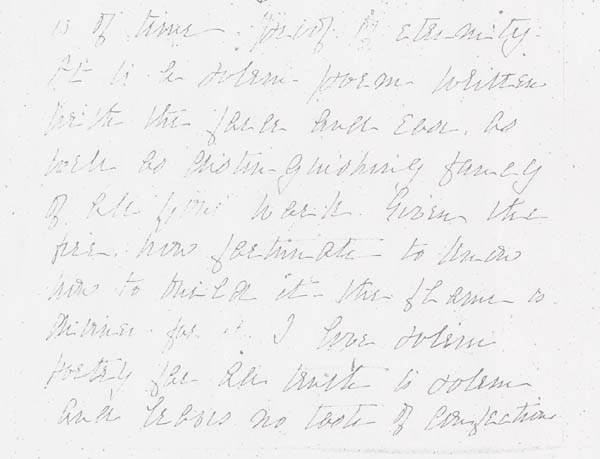 is of time - proof of eternity.
It is a solemn poem written
with the force and ease, as
well as distinguishing fancy
of all your work. Given the
fire, how fortunate to know
how to build it - the flame is
diviner for it. I love solemn
poetry for all truth is solemn
and leaves no taste of confections